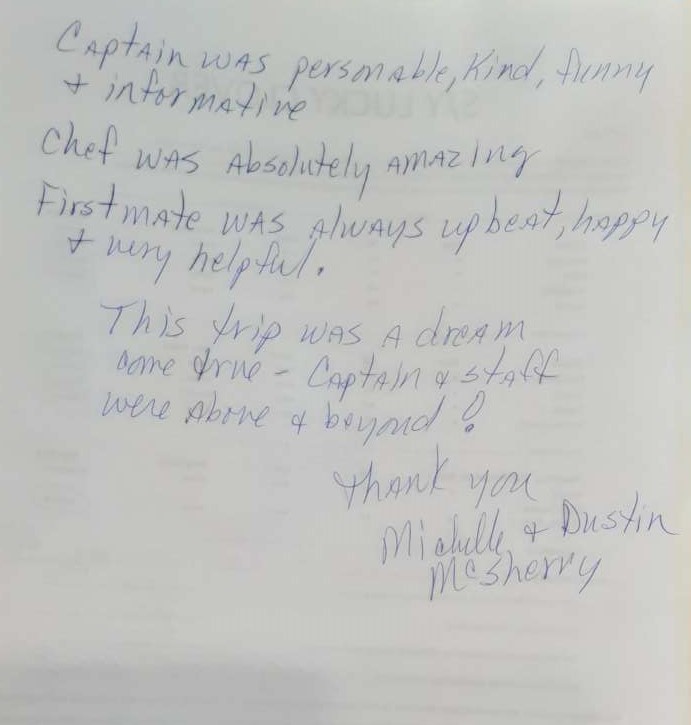 Captain was personable, Kind, funny
+ informative
Chef was Absolutely Amazing
First mate was always upbeat, happy
+ very helpful.
This trip was a dream
come true - Captain & staff
were Above & beyond!
Thank you
Michelle & Dustin
McSherry